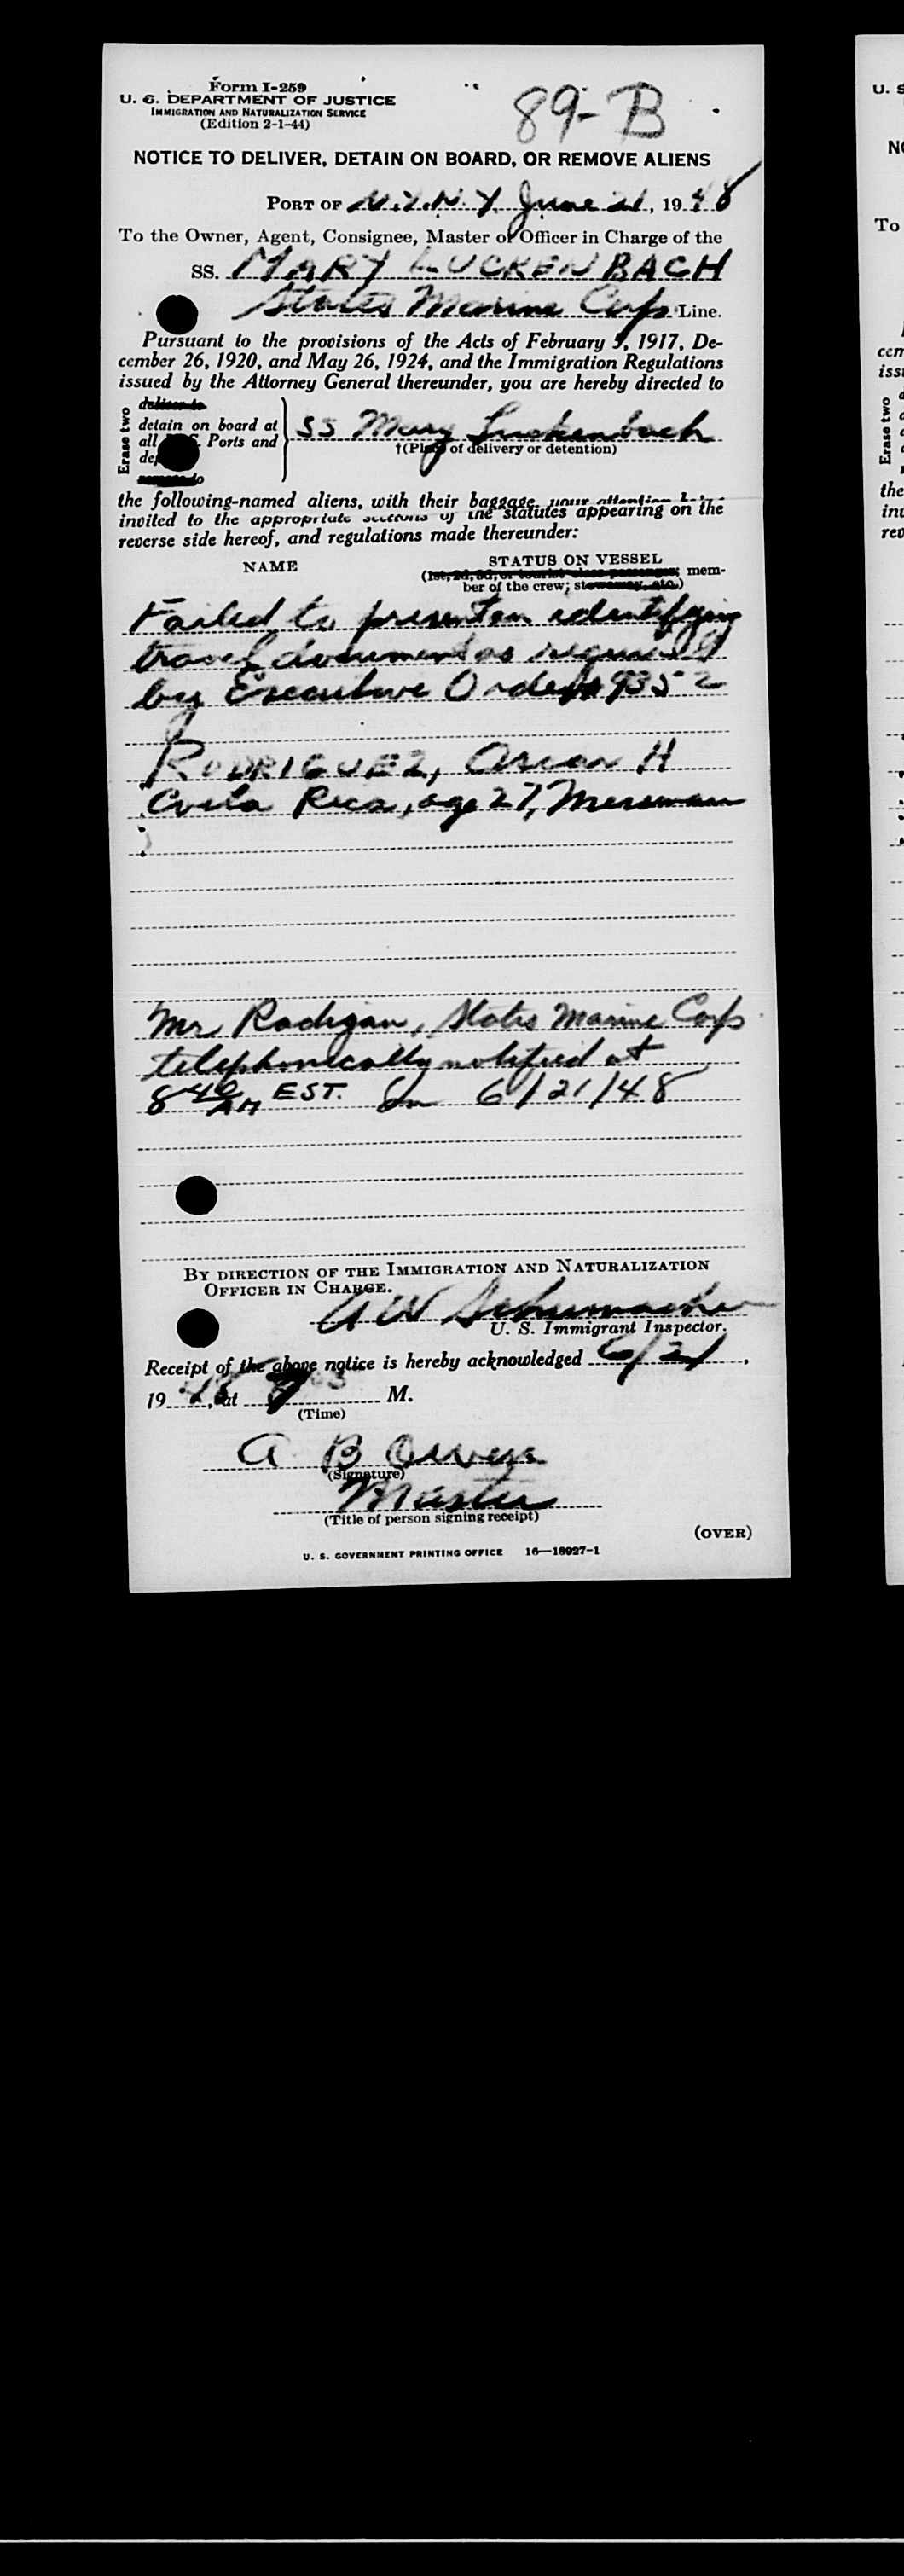 Form I-259
U. S. DEPARTMENT OF JUSTICE
IMMIGRATION AND NATURALIZATION SERVICE
(Edition 2-1-44)
89-B
NOTICE TO DELIVER, DETAIN ON BOARD, OR REMOVE ALIENS
PORT OF N.Y.N.Y. June 21, 1948
To the Owner, Agent, Consignee, Master or Officer in Charge of the
SS. MARY LUCKENBACH
States Marine Corp Line.
Pursuant to the provisions of the Acts of February 5, 1917, De-
cember 26, 1920, and May 26, 1924, and the Immigration Regulations
issued by the Attorney General thereunder, you are hereby directed to
Erase two
deliver to
detain on board at
all Ports and
SS Mary Luckenbach
†(Place of delivery or detention)
the following-named aliens, with their baggage, your attention being
invited to the appropriate sections of the statutes appearing on the
reverse side hereof, and regulations made thereunder:
NAME
STATUS ON VESSEL
(1st, 2d, 3d, or tourist class passenger; mem-
ber of the crew; stowaway, etc.)
Failed to present an identifying
travel document as required
by Executive Order #9352
RODRIGUEZ, Oscar H
Costa Rica, age 27, Messman
Mr Radigan, States Marine Corp
telephonically notified at
8 40 AM EST. on 6/21/48
BY DIRECTION OF THE IMMIGRATION AND NATURALIZATION
OFFICER IN CHARGE.
A W Schumacher
U. S. Immigrant Inspector.
Receipt of the above notice is hereby acknowledged 6/21,
1948, at M.
(Time)
A B Owen
(Signature)
Master
(Title of person signing receipt)
(OVER)
U. S. GOVERNMENT PRINTING OFFICE 16—18027-1
U. S
To